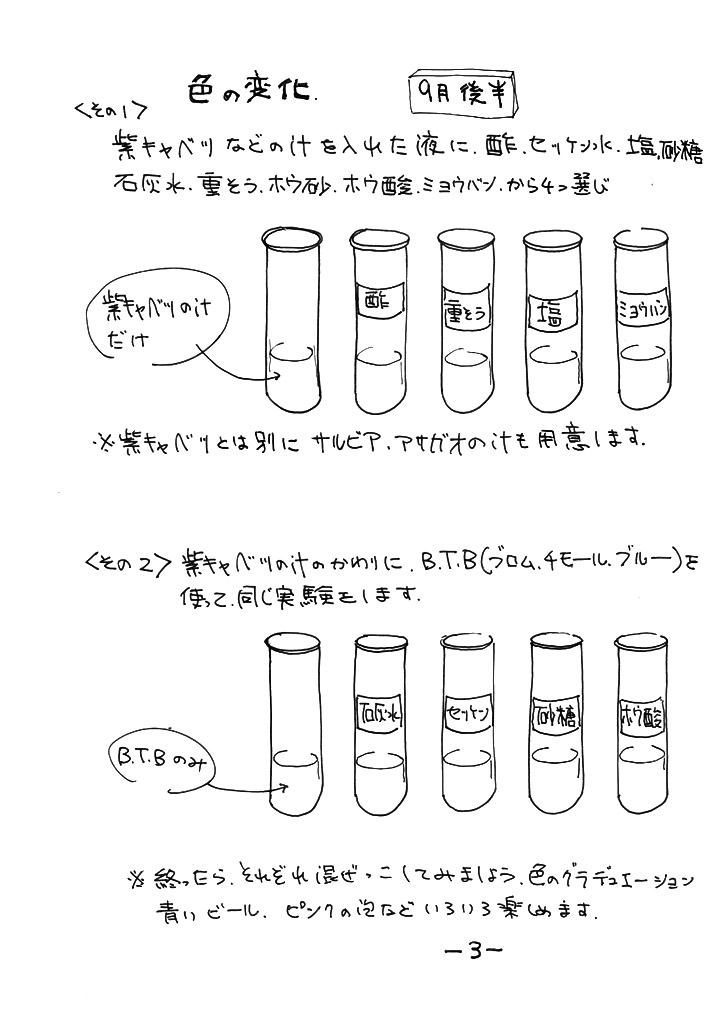 色の変化.
9月後半
<その1>
紫キャベツなどの汁を入れた液に.酢.セッケン水.塩.砂糖
石灰水.重そう.ホウ砂.ホウ酸.ミョウバン.から4つ選び
紫キャベツの汁
だけ
酢
重そう
塩
ミョウバン
※紫キャベツとは別にサルビア.アサガオの汁も用意します.
<その2>紫キャベツの汁のかわりに.B.T.B(ブロム.チモール.ブルー)を
使って.同じ実験をします.
B.T.Bのみ
石灰水
セッケン
砂糖
ホウ酸
※終ったら.それぞれ混ぜっこしてみましょう.色のグラデュエーション
青いビール.ピンクの泡などいろいろ楽しめます.
-3-